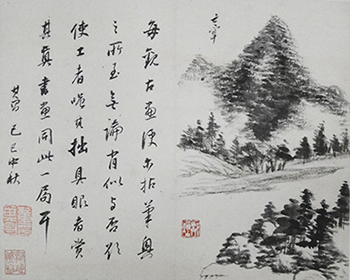 玄宰
每觀古畫便尔拈筆興
之所至無論肖似与否欲
使工者嗤其拙具眼者賞
其真書畫同此一局耳
己巳中秋